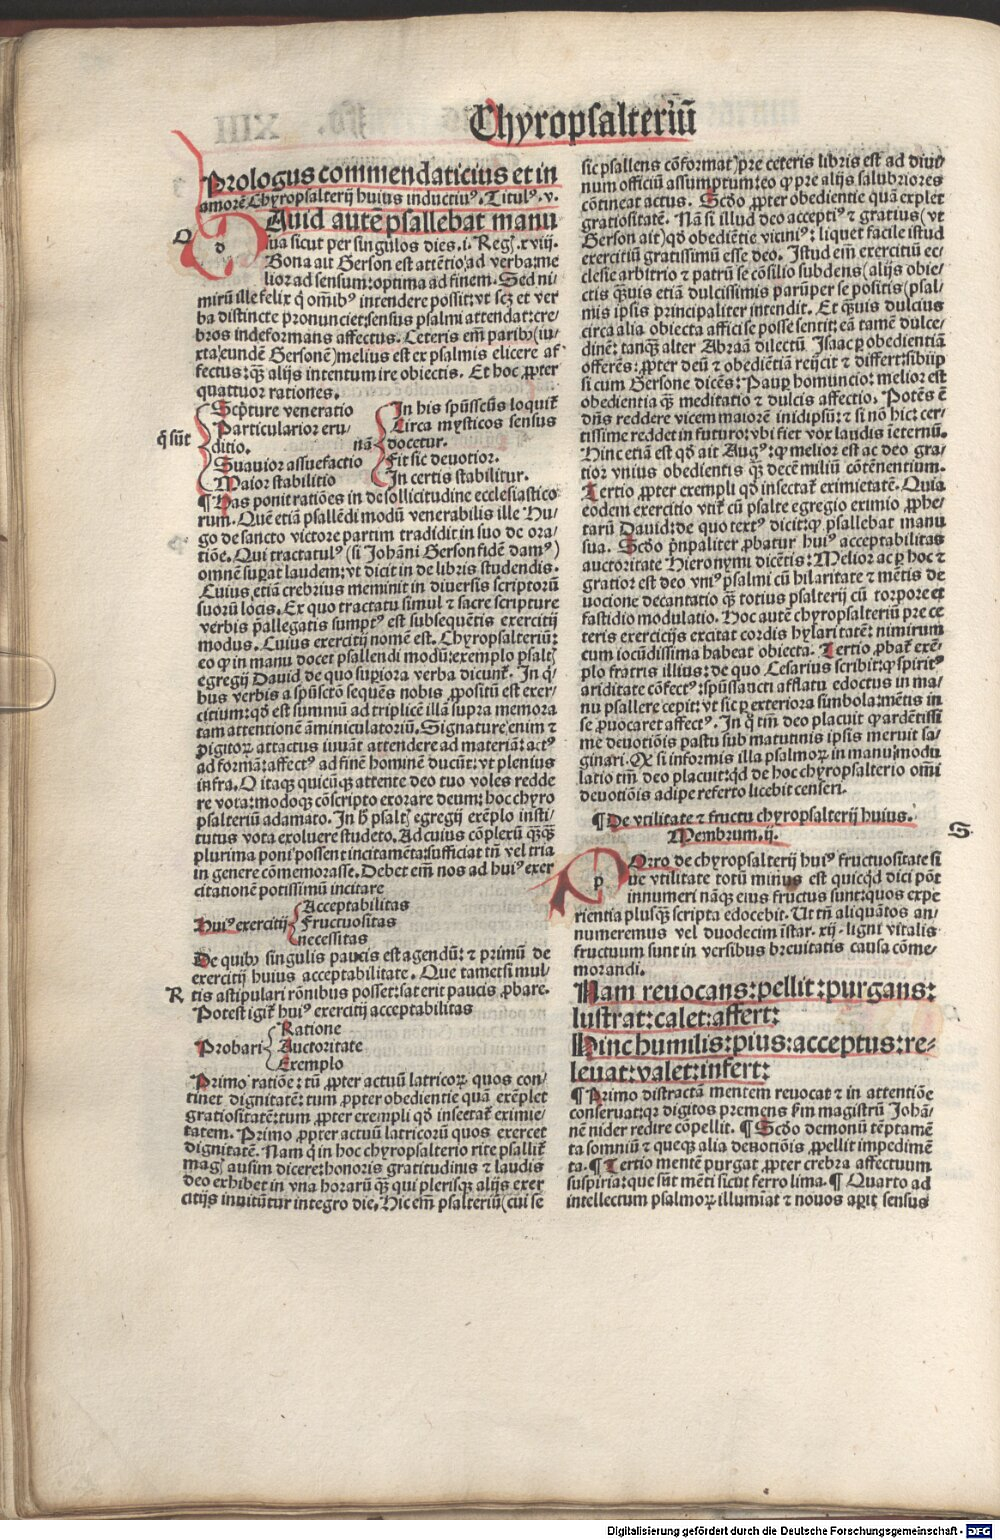 Chyropsalteriū
Prologus commendaticius et in
amorē Chyropsalterij huius inductiuꝰ. Titulꝰ. v.
Q
d
Auid autē psallebat manu
sua sicut per singulos dies. i. Reg. xviij.
Bona ait Gerson est attētio ad verba: me
lior ad sensum: optima ad finem. Sed ni-
mirū ille felix q̄ om̄ibꝰ intendere possit: vt scz et ver
ba distincte pronunciet: sensus psalmi attendat: cre
bros inde formans affectus. Ceteris em̄ paribꝰ (iu-
xta eundē Gersonē) melius est ex psalmis elicere af-
fectus: qz̄ alijs intentum ire obiectis. Et hoc ꝓpter
quattuor rationes.
q̄ sūt
Scp̄ture veneratio
Particularior eru-
ditio.
Suauior assuefactio
Maior stabilitio
nā
In his spūsscūs loquit̄
Circa mysticos sensus
docetur.
Fit sic deuotior.
In certis stabilitur.
¶ Has ponit ratiōes in de sollicitudine ecclesiastico
rum. Quē etiā psallēdi modū venerabilis ille Hu-
go de sancto victore partim tradidit in suo de ora-
tiōe. Qui tractatulꝰ (si Johāni Gerson fidē damꝰ)
omnē suꝑat laudem: vt dicit in de libris studendis.
Cuius etiā crebrius meminit in diuersis scriptorū
suorū locis. Ex quo tractatu simul ⁊ sacre scripture
verbis p̄allegatis sumptꝰ est subsequētis exercitij
modus. Cuius exercitij nomē est. Chyropsalteriū:
eo ꝙ in manu docet psallendi modū: exemplo psalt̄
egregij Dauid de quo suꝑiora verba dicunt̄. In q̄-
bus verbis a spūsctō sequēs nobis ꝓpositū est exer-
citium: qd̄ est summū ad triplicē illā supra memora
tam attentionē āminiculatoriū. Signature enim ⁊
digitoꝝ attactus iuuāt attendere ad materiā: actꝰ
ad formā: affectꝰ ad finē hominē ducūt: vt plenius
infra. O itaqꝫ quicūqꝫ attente deo tuo voles redde
re vota: modoqꝫ cōscripto exorare deum: hoc chyro
psalteriū adamato. In h̄ psalt̄ egregij exēplo insti-
tutus vota exoluere studeto. Ad cuius cōplexū qz̄qꝫ
plurima poni possent incitamēta: sufficiat tn̄ vel tria
in genere cōmemorasse. Debet em̄ nos ad huiꝰ exer
citationē potissimū incitare
Huiꝰ exercitij
Acceptabilitas
Fructuositas
necessitas
De quibꝰ singulis paucis est agendū: ⁊ primū de
exercitij huius acceptabilitate. Que tametsi mul-
R
tis astipulari rōnibus posset: sat erit paucis ꝓbare.
Potest igit̄ huiꝰ exercitij acceptabilitas
Probari
Ratione
Auctoritate
Exemplo
Primo ratiōe: tū ꝓpter actuū latricoꝝ quos con-
tinet dignitatē: tum ꝓpter obedientie quā exēplet
gratiositatē: tum ꝓpter exempli qd̄ insectat̄ eximie-
tatem. Primo ꝓpter actuū latricorū quos exercet
dignitatē. Nam q̄ in hoc chyropsalterio rite psallit̄
mag̉ ausim dicere: honoris gratitudinis ⁊ laudis
deo exhibet in vna horarū qz̄ qui plerisqꝫ alijs exer
citijs inuitūtur integro die. Hic em̄ psalteriū (cui se
sic psallens cōformat) pre ceteris libris est ad diui-
num officiū assumptum: eo ꝙ pre alijs salubriores
cōtineat actus. Scd̄o ꝓpter obedientie quā explet
gratiositatē. Nā si illud deo acceptiꝰ ⁊ gratius (vt
Gerson ait) qd̄ obediētie viciniꝰ: liquet facile istud
exercitiū gratissimū esse deo. Istud em̄ exercitiū ec-
clesie arbitrio ⁊ patrū se cōsilio subdens (alijs obie-
ctis qz̄uis etiā dulcissimis parūper se positis (psal-
mis ipsis principaliter intendit. Et qz̄uis dulcius
circa alia obiecta affici se posse sentit: eā tamē dulce-
dinē: tanqz̄ alter Abraā dilectū Isaac ꝑ obedientiā
offerēs: ꝓpter deū ⁊ obediētiā reijcit ⁊ differt: sibijp
si cum Gersone dicēs: Pauꝑ homuncio: melior est
obedientia qz̄ meditatio ⁊ dulcis affectio. Potēs ē
dn̄s reddere vicem maiorē inidipsū: ⁊ si nō hic: cer-
tissime reddet in futuro: vbi fiet vox laudis ieternū.
Hinc etiā est qd̄ ait Augꝰ: ꝙ melior est ac deo gra-
tior vnius obedientis qz̄ decē miliū cōtēnentium.
Tertio ꝓpter exempli qd̄ insectat̄ eximietatē. Quia
eodem exercitio vtit̄ cū psalte egregio eximio ꝓphe-
tarū Dauid: de quo textꝰ dicit: ꝙ psallebat manu
sua. Scd̄o p̄nꝑaliter ꝓbatur huiꝰ acceptabilitas
auctoritate Hieronymi dicētis: Melior ac ꝑ hoc ⁊
gratior est deo vniꝰ psalmi cū hilaritate ⁊ mētis de
uocione decantatio qz̄ totius psalterij cū torpore et
fastidio modulatio. Hoc autē chyropsalteriū pre ce
teris exercicijs excitat cordis hylaritatē: nimirum
cum iocūdissima habeat obiecta. Tertio ꝓbat̄ exē-
plo fratris illius: de quo Cesarius scribit: ꝙ spiritꝰ
ariditate cōfectꝰ: spūssancti afflatu edoctus in ma-
nu psallere cepit: vt sic ꝑ exteriora simbola: mētis in
se ꝓuocaret affectꝰ. In q̄ tm̄ deo placuit ꝙ ardētissi
me deuotiōis pastu sub matutinis ipsis meruit sa-
ginari. Qꝫ si informis illa psalmoꝝ in manu: modu
latio tm̄ deo placuit: qd̄ de hoc chyropsalterio om̄i
deuotiōis adipe referto licebit censeri.
¶ De vtilitate ⁊ fructu chyropsalterij huius.
S
Membrum. ij.
p
Orro de chyropsalterij huiꝰ fructuositate si
ue vtilitate totū minus est quicq̄d dici pōt
innumeri nāqꝫ eius fructus sunt: quos expe
rientia plusqz̄ scripta edocebit. Ut tn̄ aliquātos an-
numeremus vel duodecim īstar. xij. ligni vitalis
fructuum sunt in versibus breuitatis causa cōme-
morandi.
Nam reuocans: pellit: purgans:
lustrat: calet: affert:
Hinc humilis: pius: acceptus: re-
leuat: valet: infert:
¶ Primo distractā mentem reuocat ⁊ in attentiōe
conseruat: qꝛ digitos premens scd̄m magistrū Johā-
nē nider redire cōpellit. ¶ Scd̄o demonū tēptamē
ta somniū ⁊ queqꝫ alia deuotiōis ꝓpellit impedimē
ta. ¶ Tertio mentē purgat ꝓpter crebra affectuum
suspiria: que sūt mēti sicut ferro lima. ¶ Quarto ad
intellectum psalmoꝝ illumīat ⁊ nouos aꝑit sensus
Digitalisierung gefördert durch die Deutsche Forschungsgemeinschaft - DFG